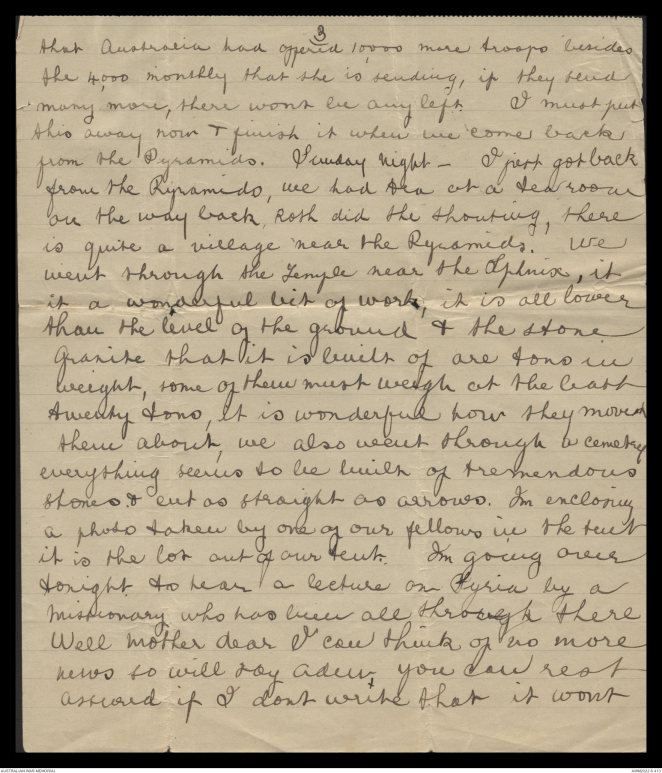 3
that Australia had offered 10,000 more troops besides
the 4,000 monthly that she is sending, if they send
many more, there wont be any left. I must put
this away now & finish it when we come back
from the Pyramids. Sunday Night - I just got back
from the Pyramids, we had tea at a tea room
on the way back, Roth did the shouting, there
is quite a village near the Pyramids. We
went through the Temple near the Sphnix, it
it a wonderful bit of work, it is all lower
than the level of the ground & the stone
Granite that it is built of are tons in
weight, some of them must weigh at the least
twenty tons, it is wonderful how they moved
them about, we also went through a cemetry
everything seems to be built of tremendous
stones & cut as straight as arrows. Im enclosing
a photo taken by one of our fellows in the tent
it is the lot out of our tent. Im going over
tonight to hear a lecture on Syria by a
missionary who has been all through there
Well Mother dear I can think of no more
news so will say adieu, you can rest
assured if I dont write that it wont
AUSTRALIAN WAR MEMORIAL